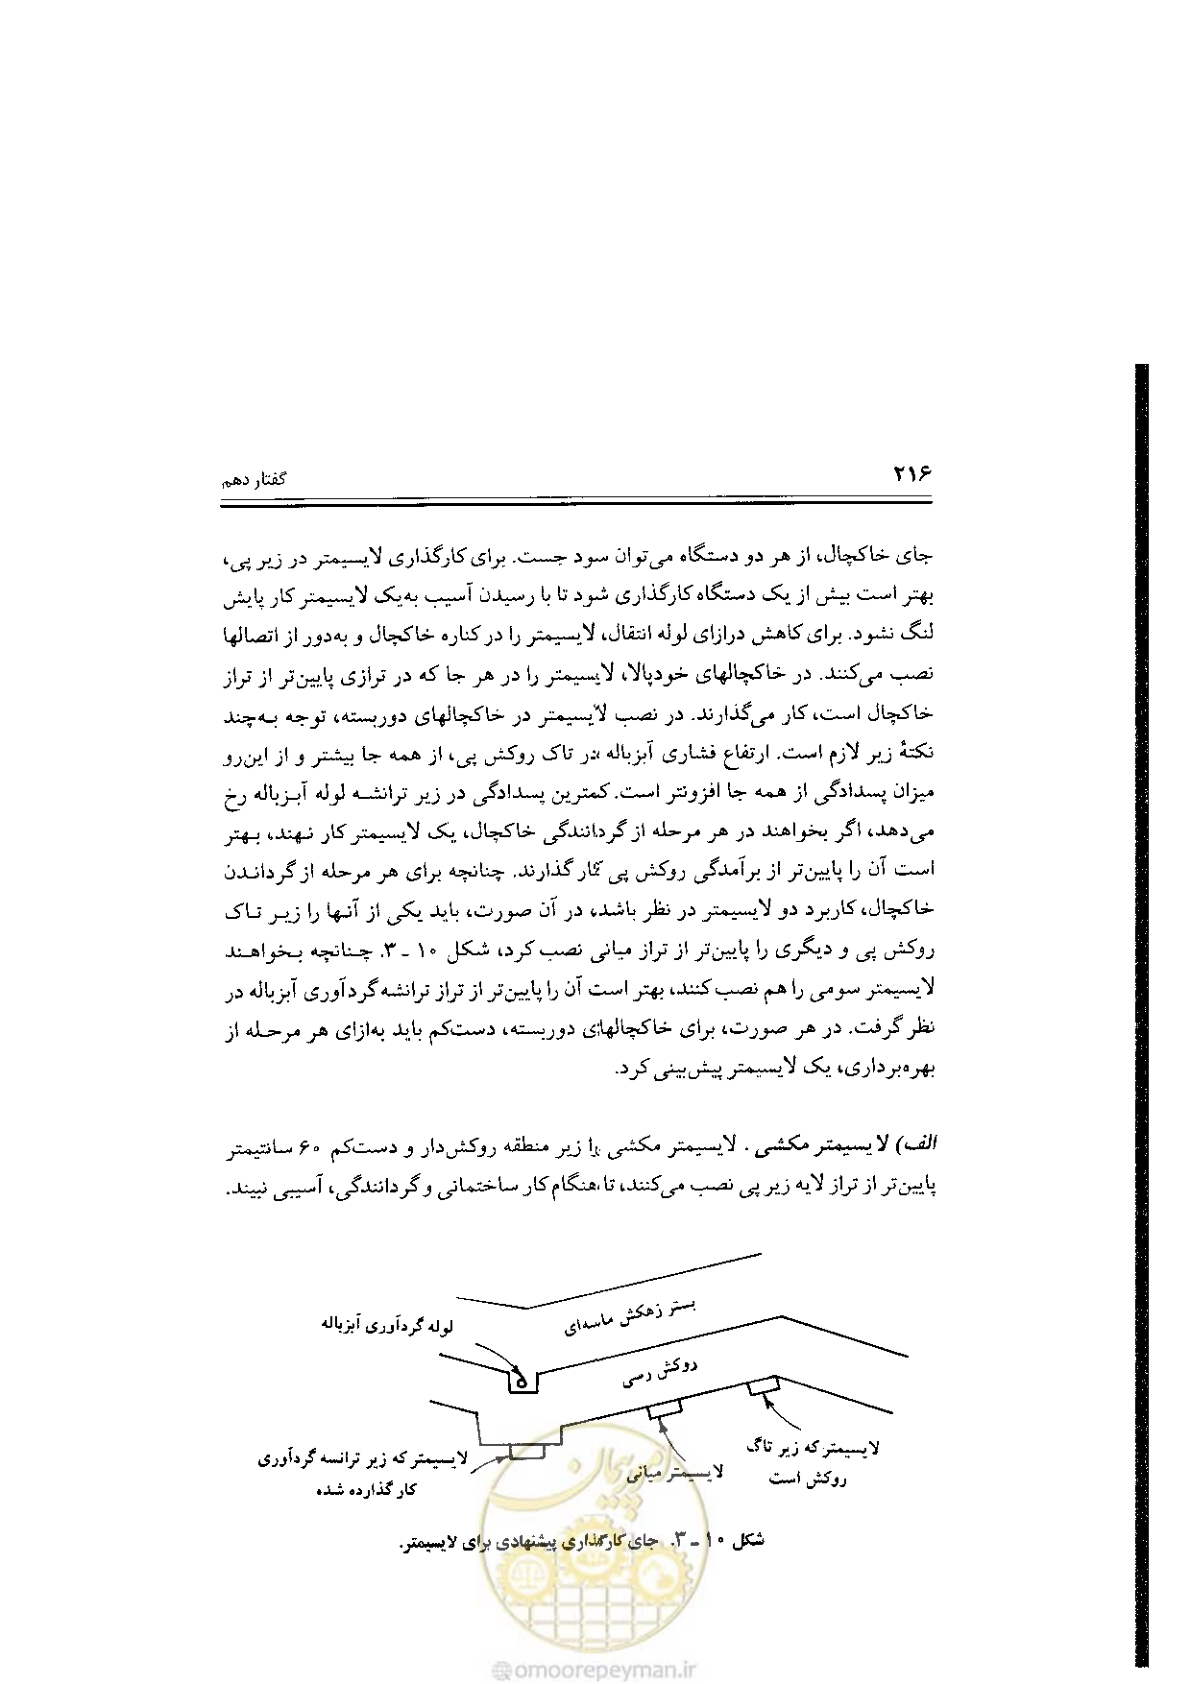 ۲۱۶
گفتار دهم
جای خاکچال، از هر دو دستگاه می‌توان سود جست. برای کارگذاری لایسیمتر در زیر پی،
بهتر است بیش از یک دستگاه کارگذاری شود تا با رسیدن آسیب به‌یک لایسیمتر کار پایش
لنگ نشود. برای کاهش درازای لوله انتقال، لایسیمتر را در کناره خاکچال و به‌دور از اتصالها
نصب می‌کنند. در خاکچالهای خودپالا، لایسیمتر را در هر جا که در ترازی پایین‌تر از تراز
خاکچال است، کار می‌گذارند. در نصب لایسیمتر در خاکچالهای دوربسته، توجه به‌چند
نکتهٔ زیر لازم است. ارتفاع فشاری آبزباله در تاک روکش پی، از همه جا بیشتر و از این‌رو
میزان پسدادگی از همه جا افزونتر است. کمترین پسدادگی در زیر ترانشه لوله آبزباله رخ
می‌دهد، اگر بخواهند در هر مرحله از گردانندگی خاکچال، یک لایسیمتر کار نهند، بهتر
است آن را پایین‌تر از برآمدگی روکش پی کار گذارند. چنانچه برای هر مرحله از گرداندن
خاکچال، کاربرد دو لایسیمتر در نظر باشد، در آن صورت، باید یکی از آنها را زیر تاک
روکش پی و دیگری را پایین‌تر از تراز میانی نصب کرد، شکل ۱۰ ـ ۳. چنانچه بخواهند
لایسیمتر سومی را هم نصب کنند، بهتر است آن را پایین‌تر از تراز ترانشه گردآوری آبزباله در
نظر گرفت. در هر صورت، برای خاکچالهای دوربسته، دست‌کم باید به‌ازای هر مرحله از
بهره‌برداری، یک لایسیمتر پیش‌بینی کرد.
الف) لایسیمتر مکشی . لایسیمتر مکشی را زیر منطقه روکش‌دار و دست‌کم ۶۰ سانتیمتر
پایین‌تر از تراز لایه زیر پی نصب می‌کنند، تا هنگام کار ساختمانی و گردانندگی، آسیبی نبیند.
بستر زهکش ماسه‌ای
لوله گردآوری آبزباله
روکش رسی
لایسیمتر که زیر تاگ
روکش است
لایسیمتر میانی
لایسیمتر که زیر ترانسه گردآوری
کار گذارده شده
شکل ۱۰ ـ ۳. جای کارگذاری پیشنهادی برای لایسیمتر.
امور پیمان
@omoorepeyman.ir